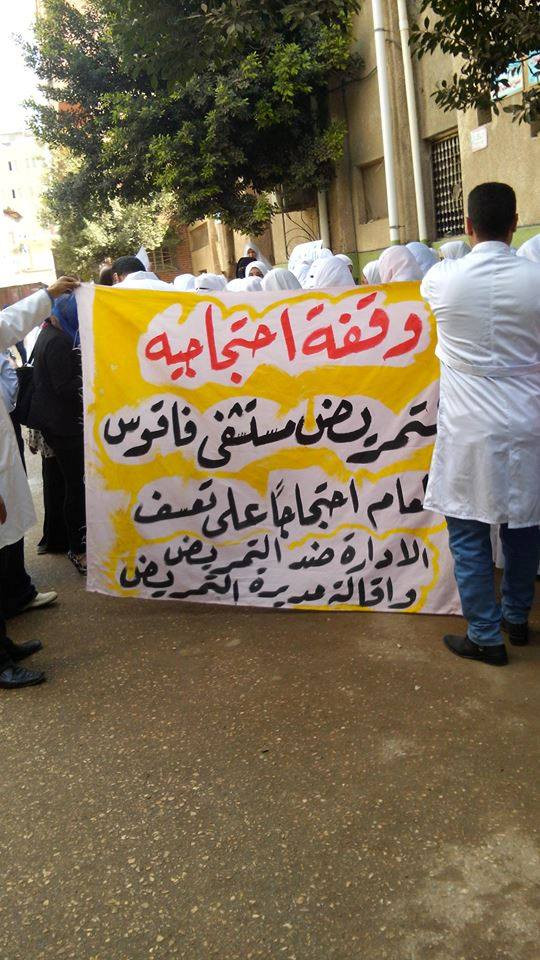 وقفة احتجاجيه
تمريض مستشفى فاقوس
لعام احتجاجاً على تعسف
الادارة ضد التمريض
واقالة مديرة التمريض